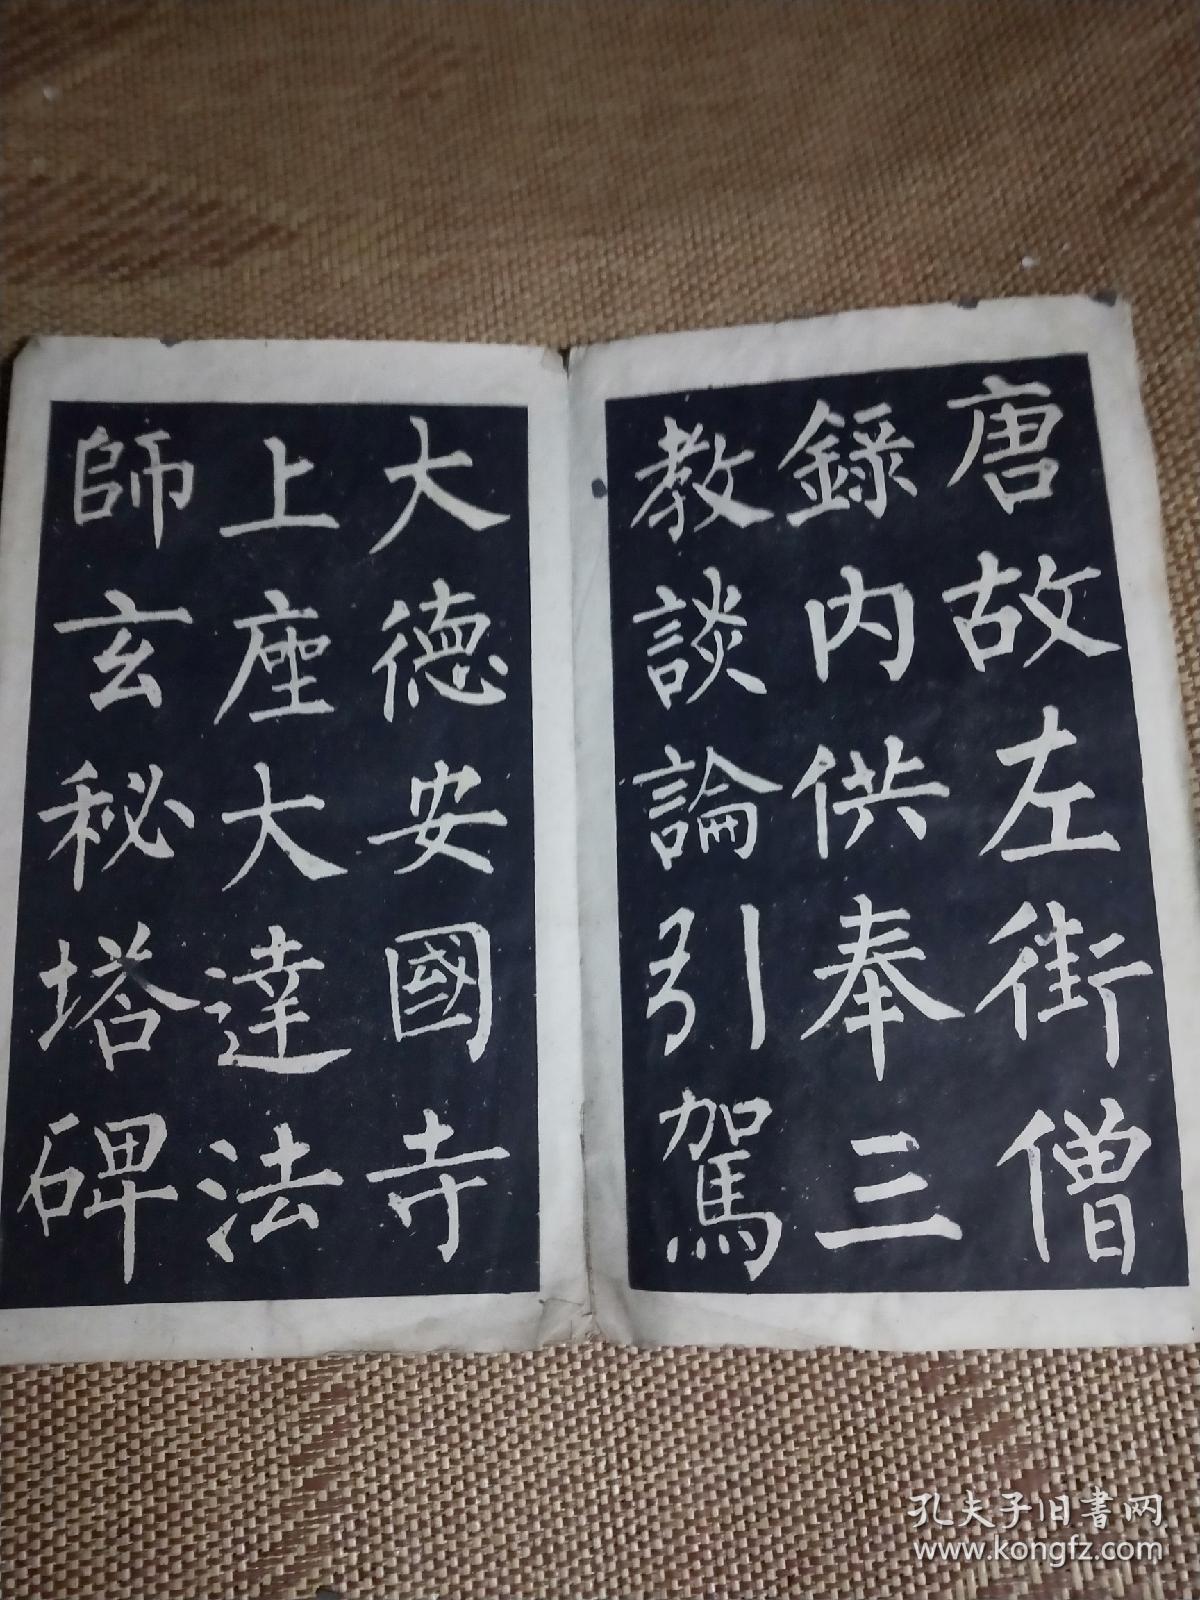 唐故左街僧
錄內供奉三
教談論引駕
大德安國寺
上座大達法
師玄秘塔碑
孔夫子旧書网
www.kongfz.com